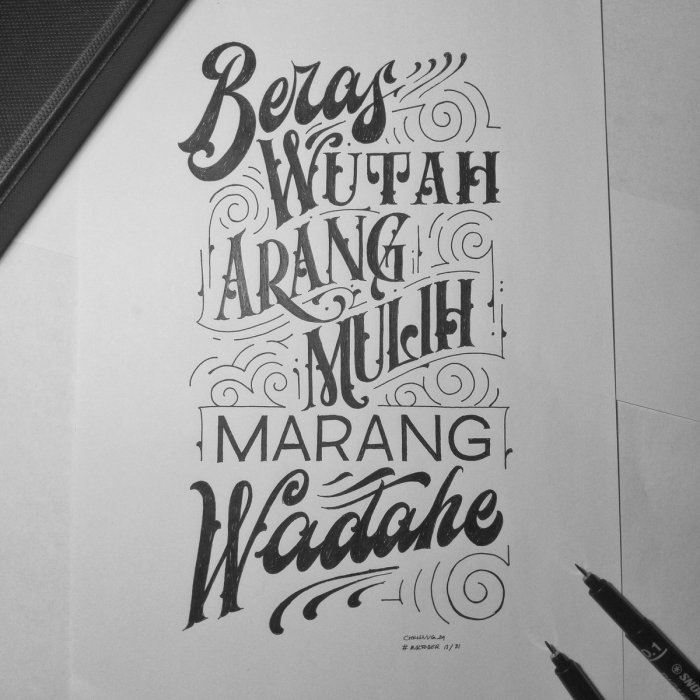 Beras
WUTAH
ARANG
MULIH
MARANG
Wadahe
0.1